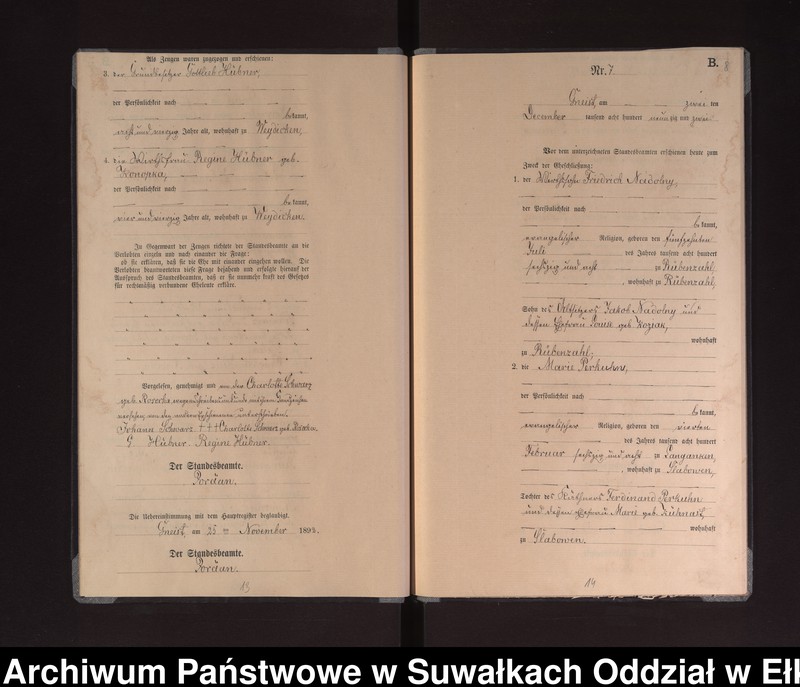 Als Zeugen waren zugezogen und erschienen:
3. der Grundbesitzer Gottlieb Hübner,
der Persönlichkeit nach
bekannt,
und vierzig Jahre alt, wohnhaft zu Weydicken,
4. die Wirthsfrau Regine Hübner geb.
Konopka,
der Persönlichkeit nach
bekannt,
vier und vierzig Jahre alt, wohnhaft zu Weydicken.
In Gegenwart der Zeugen richtete der Standesbeamte an die
Verlobten einzeln und nach einander die Frage:
ob sie erklären, daß sie die Ehe mit einander eingehen wollen. Die
Verlobten beantworteten diese Frage bejahend und erfolgte hierauf der
Ausspruch des Standesbeamten, daß er sie nunmehr kraft des Gesetzes
für rechtmäßig verbundene Eheleute erkläre.
Vorgelesen, genehmigt und von der Charlotte Schwarz
geb. wegen Schreibensunkunde mit ihrem Handzeichen
versehen, von den anderen Erschienenen unterschrieben.
Johann Schwarz +++ Charlotte Schwarz geb.
G. Hübner. Regine Hübner.
Der Standesbeamte.
Pordan.
Die Uebereinstimmung mit dem Hauptregister beglaubigt.
Gneist, am 25 ten November 189
Der Standesbeamte.
Pordan.
13
B.
8
Nr. 7
Gneist, am zwei ten
December tausend acht hundert neunzig und zwei
Vor dem unterzeichneten Standesbeamten erschienen heute zum
Zweck der Eheschließung:
1. der Wirthssohn Friedrich Nadolny,
der Persönlichkeit nach
bekannt,
evangelischer Religion, geboren den fünfzehnten
Juli des Jahres tausend acht hundert
sechszig und acht zu Rübenzahl,
, wohnhaft zu Rübenzahl,
Sohn des Altsitzers Jakob Nadolny und
dessen Ehefrau Louise geb. Koziak,
wohnhaft
zu Rübenzahl;
2. die Marie Perkuhn,
der Persönlichkeit nach
bekannt,
evangelischer Religion, geboren den vierten
des Jahres tausend acht hundert
Februar sechszig und acht zu Langanken,
, wohnhaft zu Slabowen,
Tochter des Käthners Ferdinand Perkuhn
und dessen Ehefrau Marie geb. Kühnast,
wohnhaft
zu Slabowen.
14
Archiwum Państwowe w Suwałkach Oddział w Eł